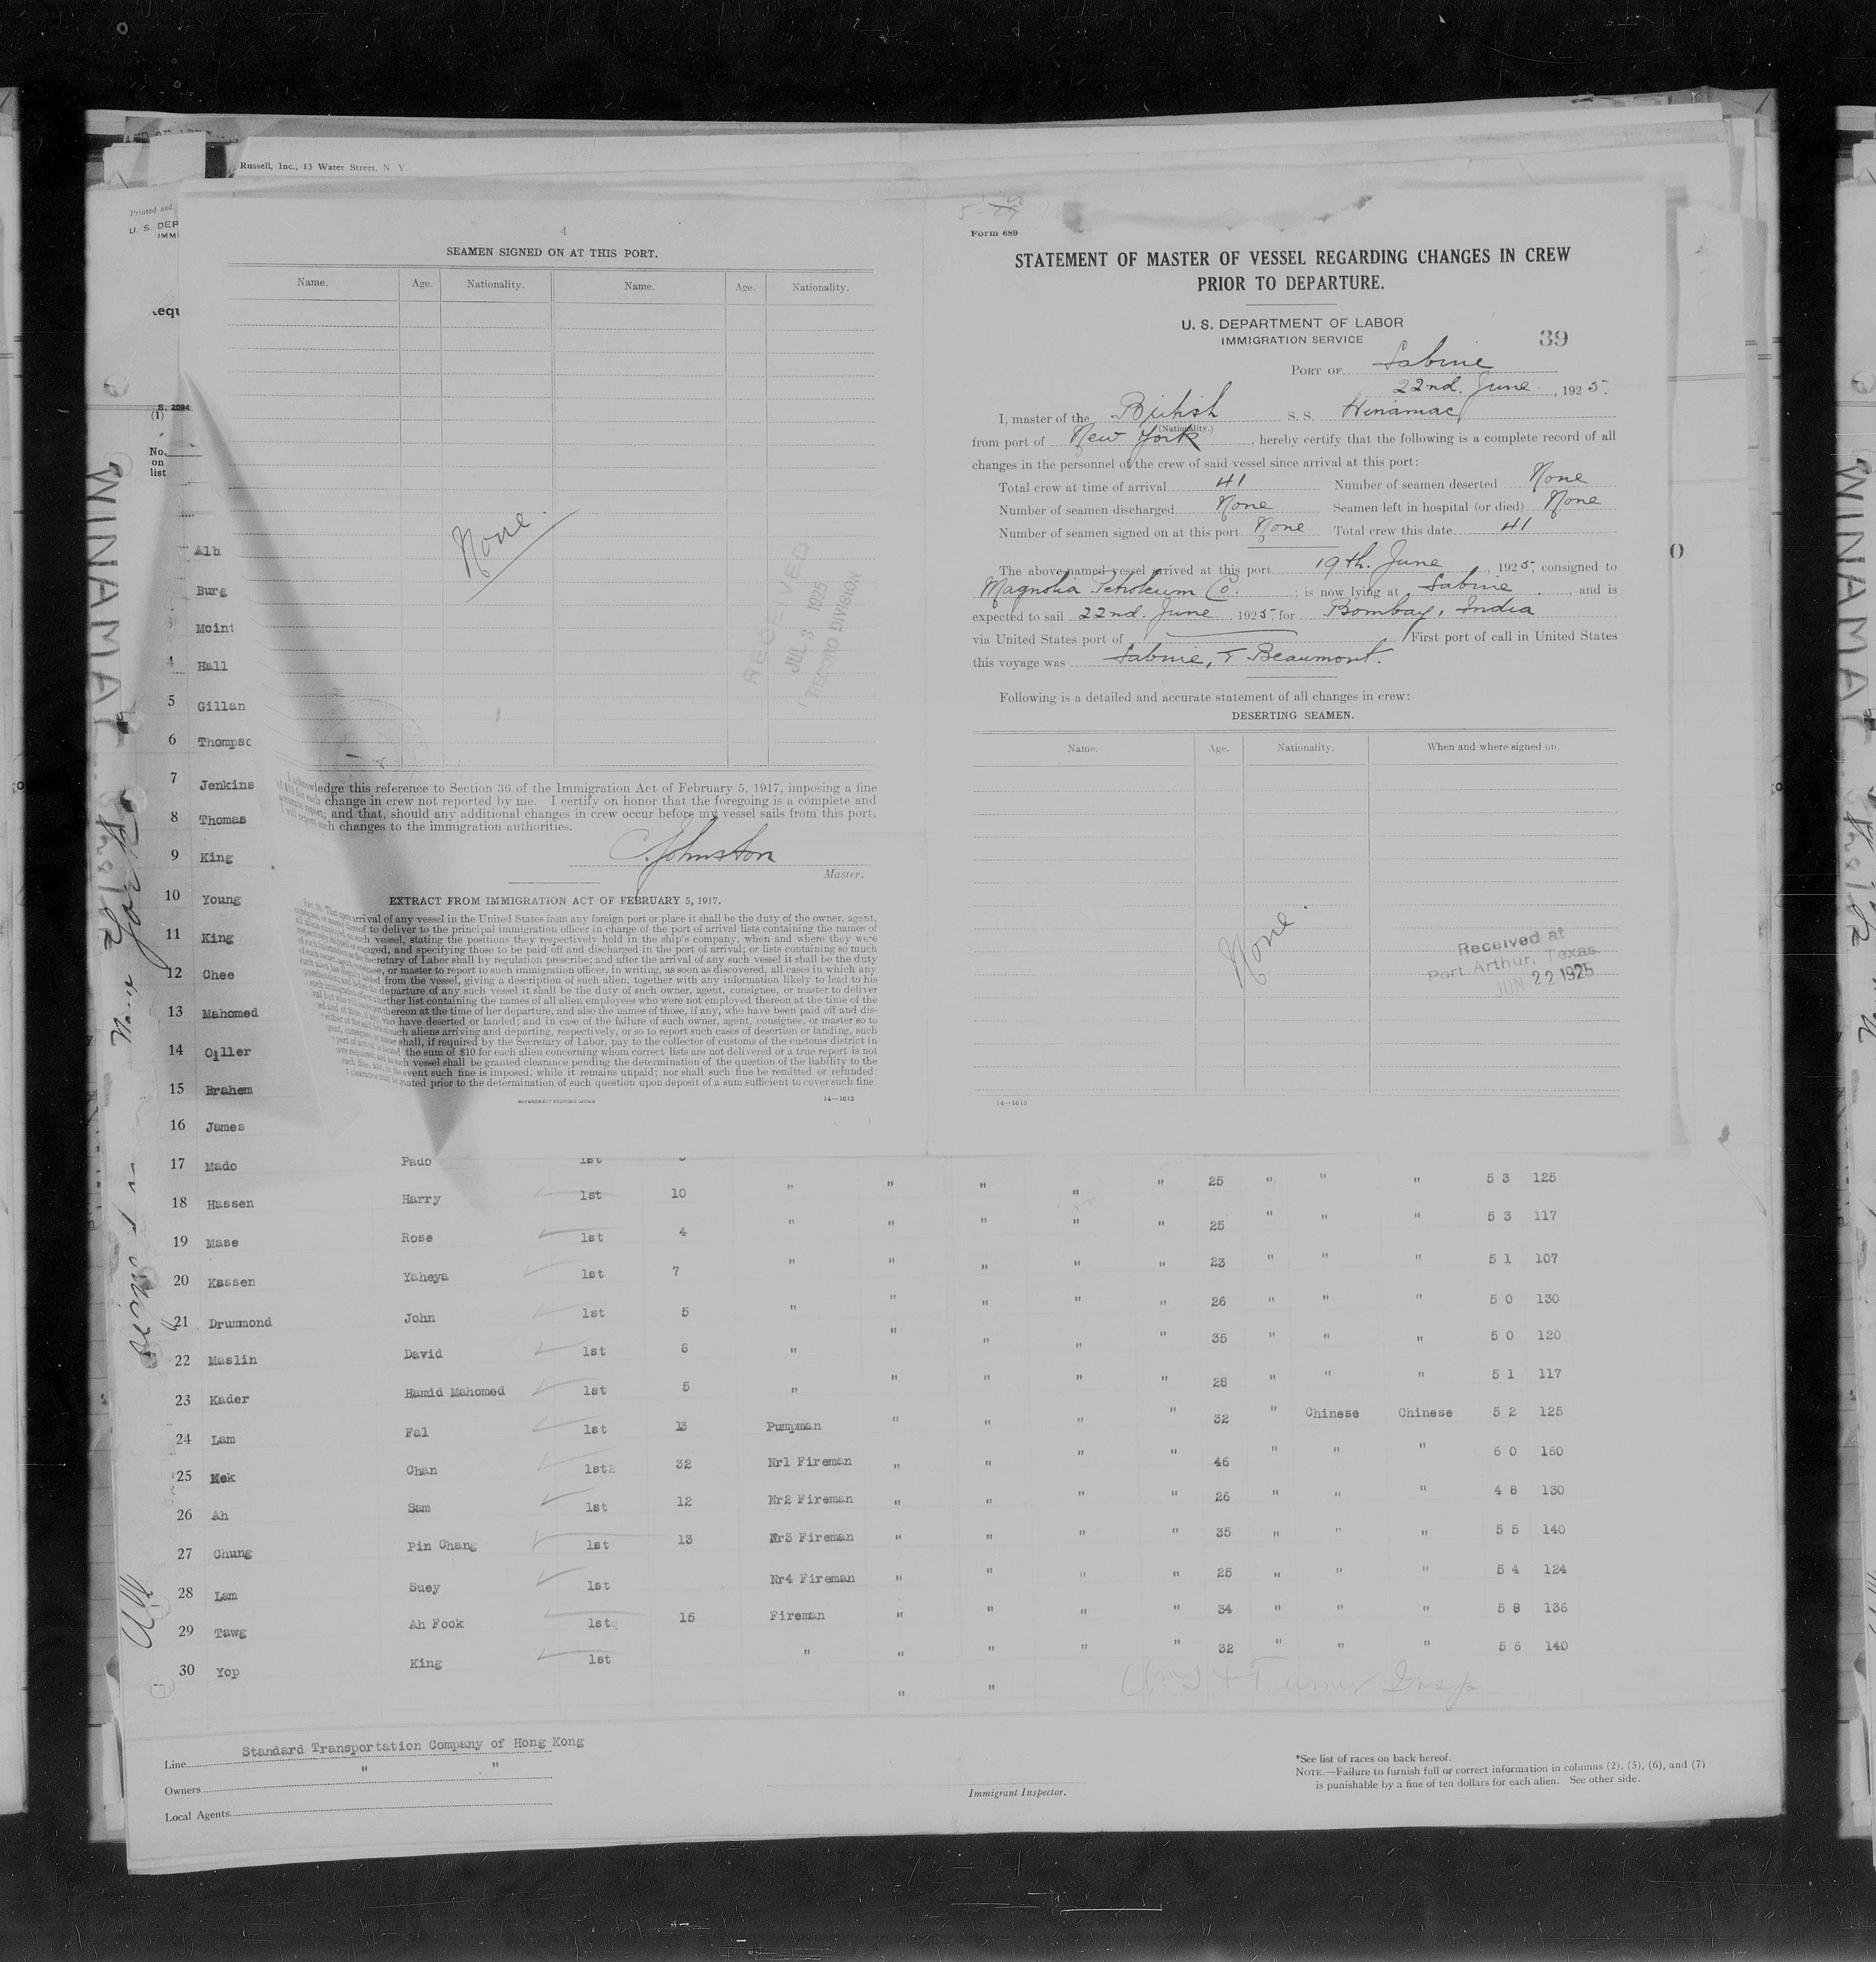 Russell, Inc., 13 Water Street, N. Y.
Printed and
U. S. DEP
IMMI
S. 2094
(1)
No.
on
list
WINAMAC
4
SEAMEN SIGNED ON AT THIS PORT.
Name. Age. Nationality. Name. Age. Nationality.
None.
RECEIVED
JUL 3 1925
RECORD DIVISION
I acknowledge this reference to Section 36 of the Immigration Act of February 5, 1917, imposing a fine
of $10 for each change in crew not reported by me. I certify on honor that the foregoing is a complete and
accurate report; and that, should any additional changes in crew occur before my vessel sails from this port,
I will report such changes to the immigration authorities.
C. Johnston
Master.
EXTRACT FROM IMMIGRATION ACT OF FEBRUARY 5, 1917.
arrival of any vessel in the United States from any foreign port or place it shall be the duty of the owner, agent,
to deliver to the principal immigration officer in charge of the port of arrival lists containing the names of
vessel, stating the positions they respectively hold in the ship's company, when and where they were
and specifying those to be paid off and discharged in the port of arrival; or lists containing so much
Secretary of Labor shall by regulation prescribe; and after the arrival of any such vessel it shall be the duty
or master to report to such immigration officer, in writing, as soon as discovered, all cases in which any
from the vessel, giving a description of such alien, together with any information likely to lead to his
departure of any such vessel it shall be the duty of such owner, agent, consignee, or master to deliver
further list containing the names of all alien employees who were not employed thereon at the time of the
thereon at the time of her departure, and also the names of those, if any, who have been paid off and dis-
who have deserted or landed; and in case of the failure of such owner, agent, consignee, or master so to
such aliens arriving and departing, respectively, or so to report such cases of desertion or landing, such
shall, if required by the Secretary of Labor, pay to the collector of customs of the customs district in
the sum of $10 for each alien concerning whom correct lists are not delivered or a true report is not
vessel shall be granted clearance pending the determination of the question of the liability to the
event such fine is imposed, while it remains unpaid; nor shall such fine be remitted or refunded:
prior to the determination of such question upon deposit of a sum sufficient to cover such fine.
GOVERNMENT PRINTING OFFICE 14—1613
Form 689
STATEMENT OF MASTER OF VESSEL REGARDING CHANGES IN CREW
PRIOR TO DEPARTURE.
U. S. DEPARTMENT OF LABOR
IMMIGRATION SERVICE
39
PORT OF Sabine
22nd. June, 1925.
I, master of the British S. S. Winamac
(Nationality.)
from port of New York, hereby certify that the following is a complete record of all
changes in the personnel of the crew of said vessel since arrival at this port:
Total crew at time of arrival 41 Number of seamen deserted None
Number of seamen discharged None Seamen left in hospital (or died) None
Number of seamen signed on at this port None Total crew this date 41
The above-named vessel arrived at this port 19th. June, 1925, consigned to
Magnolia Petroleum Co.; is now lying at Sabine, and is
expected to sail 22nd. June, 1925, for Bombay, India
via United States port of First port of call in United States
this voyage was Sabine, & Beaumont.
Following is a detailed and accurate statement of all changes in crew:
DESERTING SEAMEN.
Name. Age. Nationality. When and where signed on.
None.
Received at
Port Arthur, Texas.
JUN 22 1925
14—1613
Alb
Burg
Mcint
4 Hall
5 Gillan
6 Thompso
7 Jenkins
8 Thomas
9 King
10 Young
11 King
12 Chee
13 Mahomed
14 Oiller
15 Brahem
16 James
17 Mado Pado 1st " " " " " 25 " " " 5 3 125
18 Hassen Harry 1st 10 " " " " " 25 " " " 5 3 117
19 Mase Rose 1st 4 " " " " " 23 " " " 5 1 107
20 Kassen Yaheya 1st 7 " " " " " 26 " " " 5 0 130
21 Drummond John 1st 5 " " " " " 35 " " " 5 0 120
22 Maslin David 1st 8 " " " " " 28 " " " 5 1 117
23 Kader Hamid Mahomed 1st 5 " " " " " 32 " Chinese Chinese 5 2 125
24 Lam Fal 1st 13 Pumpman " " " " 46 " " " 6 0 160
25 Mok Chan 1st 32 Nr1 Fireman " " " " 26 " " " 4 8 130
26 Ah Sam 1st 12 Nr2 Fireman " " " " 35 " " " 5 5 140
27 Chung Pin Chang 1st 13 Nr3 Fireman " " " " 25 " " " 5 4 124
28 Lam Suey 1st Nr4 Fireman " " " " 34 " " " 5 8 136
29 Tawg Ah Fook 1st 15 Fireman " " " " 32 " " " 5 6 140
30 Yop King 1st " " "
Line Standard Transportation Company of Hong Kong
Owners " "
Local Agents
Immigrant Inspector.
*See list of races on back hereof.
NOTE.—Failure to furnish full or correct information in columns (2), (5), (6), and (7)
is punishable by a fine of ten dollars for each alien. See other side.